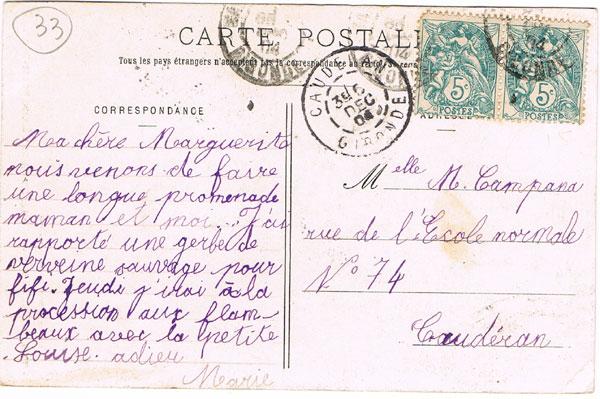 33
CARTE POSTALE
Tous les pays étrangers n'acceptent pas la correspondance au
CORRESPONDANCE
Ma chère Marguerite
nous venons de faire
une longue promenade
maman et moi. J'ai
rapporté une gerbe de
verveine sauvage pour
fifi. Jeudi j'irai à la
procession aux flam-
beaux avec la petite
Louise adieu
Marie
CAUD
GIRONDE
3E
6
DEC
04
GIRONDE
04
GIRONDE
5c
POSTES
5c
POSTES
Melle M. Campana
rue de l'École normale
No 74
Caudéran